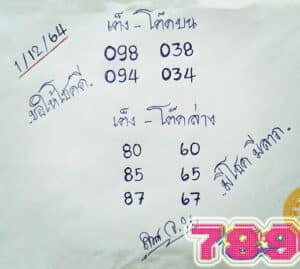 1/12/64
เต็ง - โต๊ดบน
098 038
094 034
ขอให้โชคดี.
เต็ง - โต๊ดล่าง
80 60
85 65
87 67
มีโชค มีลาภ
789